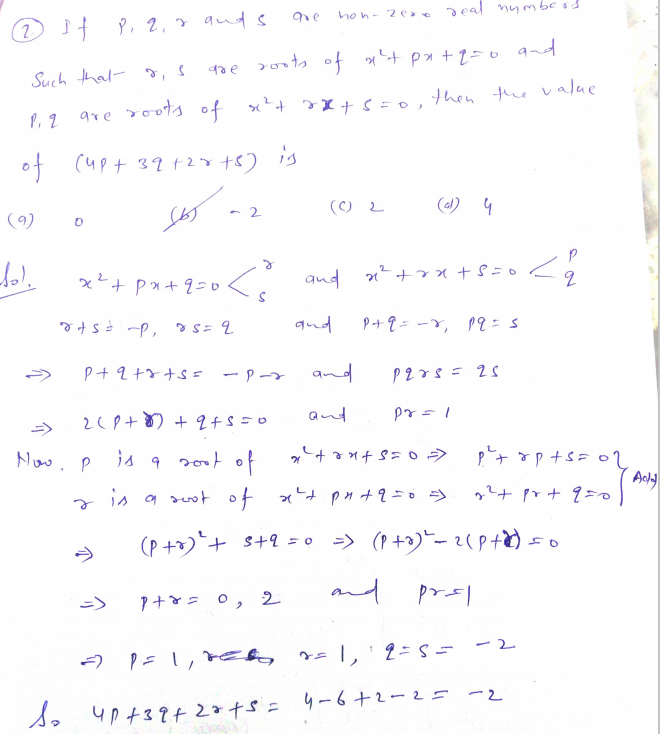 ② If p, q, r and s are non-zero real numbers
Such that r, s are roots of x² + px + q = 0 and
p, q are roots of x² + rx + s = 0, then the value
of (4p + 3q + 2r + s) is
(a) 0 (b) -2 (c) 2 (d) 4
Sol. x² + px + q = 0 < r s and x² + rx + s = 0 < p q
r + s = -p, rs = q and p + q = -r, pq = s
⇒ p + q + r + s = -p - r and pqrs = qs
⇒ 2(p + r) + q + s = 0 and pr = 1
Now, p is a root of x² + rx + s = 0 ⇒ p² + rp + s = 0
r is a root of x² + px + q = 0 ⇒ r² + pr + q = 0 } Add
⇒ (p + r)² + s + q = 0 ⇒ (p + r)² - 2(p + r) = 0
⇒ p + r = 0, 2 and pr = 1
⇒ p = 1, r = 1, q = s = -2
So 4p + 3q + 2r + s = 4 - 6 + 2 - 2 = -2